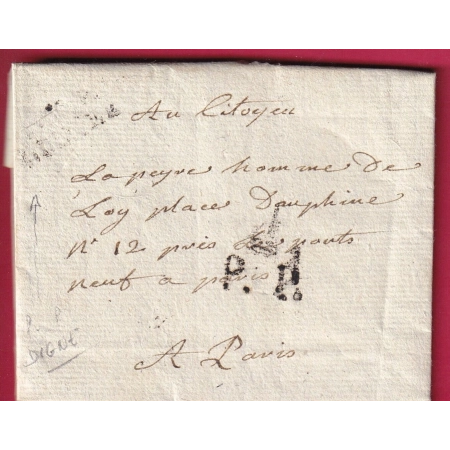 Au Citoyen
Lapeyre homme De
Loy place Dauphine
n° 12 près Le ponts
neuf a paris
P. P.
A Paris
P P
DIGNE